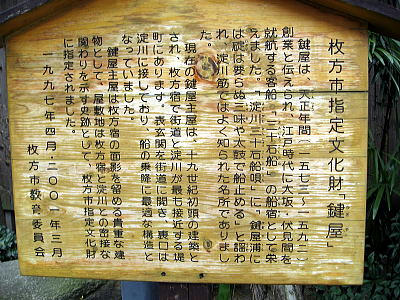 枚方市指定文化財「鍵屋」
鍵屋は、天正年間（一五七三～一五九二）
創業と伝えられ、江戸時代に大坂・伏見間を
就航する客船、「三十石船」の船宿として栄
えました。「淀川三十石船唄」に「鍵屋浦に
は碇は要らぬ三味や太鼓で船止める」と謡わ
れ、淀川筋ではよく知られた名所でありまし
た。
現在の鍵屋主屋は、十九世紀初頭の建築と
され、枚方宿で街道と淀川が最も接近する堤
町にあります。表玄関を街道に開き、裏口は
淀川に接しており、船の乗降に最適な構造と
なっていました。
鍵屋主屋は枚方宿の面影を留める貴重な建
物として、屋敷地は枚方宿と淀川との密接な
関わりを示す史跡として、枚方市指定文化財
に指定されました。
一九九七年四月・二〇〇一年三月
枚方市教育委員会